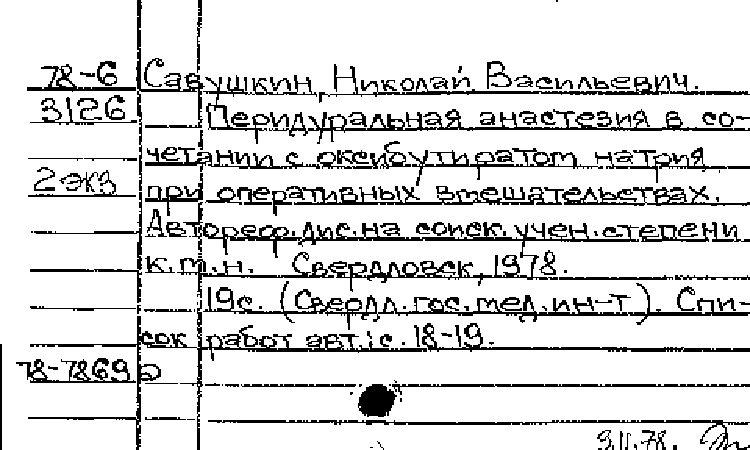 78-6 Савушкин, Николай Васильевич.
3126 Перидуральная анастезия в со-
четании с оксибутиратом натрия
2 экз при оперативных вмешательствах.
Автореф. дис. на соиск. учен. степени
к.м.н. Свердловск, 1978.
19с. (Свердл. гос. мед. ин-т). Спи-
сок работ авт.: с. 18-19.
78-7869
9.II.78.